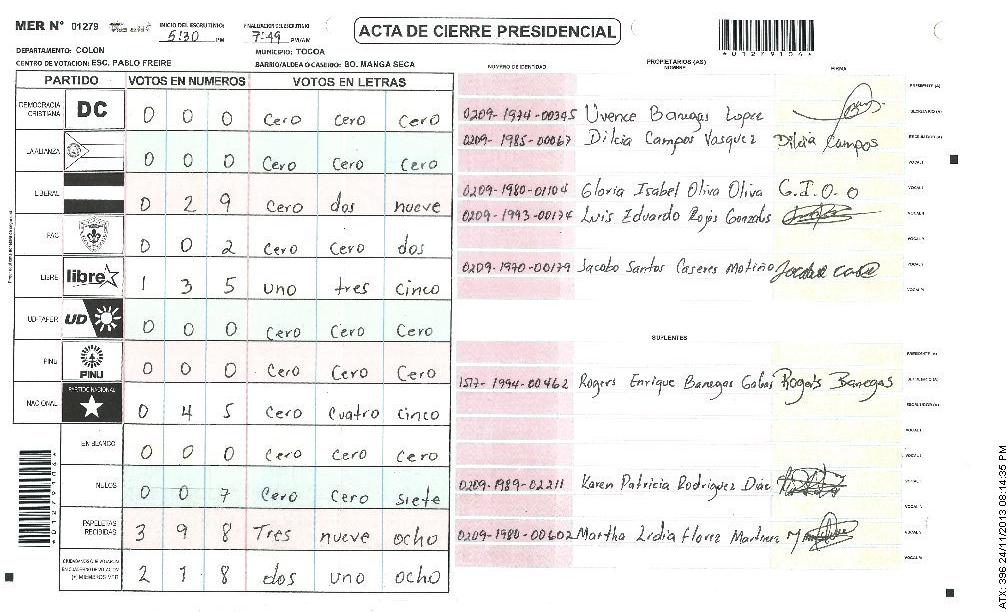 MER N° 01279 INICIO DEL ESCRUTINIO: 5:30 PM FINALIZACION DEL ESCRUTINIO 7:49 PM/AM
ACTA DE CIERRE PRESIDENCIAL
*01279104*
DEPARTAMENTO: COLON MUNICIPIO: TOCOA
CENTRO DE VOTACION: ESC. PABLO FREIRE BARRIO/ALDEA O CASERIO: BO. MANGA SECA
NUMERO DE IDENTIDAD PROPIETARIOS (AS) NOMBRE FIRMA
PARTIDO VOTOS EN NUMEROS VOTOS EN LETRAS
DEMOCRACIA CRISTIANA DC 0 0 0 Cero Cero Cero
LA ALIANZA 0 0 0 Cero Cero Cero
LIBERAL 0 2 9 Cero dos nueve
PAC 0 0 2 Cero Cero dos
LIBRE libre 1 3 5 uno tres cinco
UD-FAPER UD 0 0 0 Cero Cero Cero
PINU PINU 0 0 0 Cero Cero Cero
NACIONAL PARTIDO NACIONAL 0 4 5 Cero Cuatro cinco
EN BLANCO 0 0 0 Cero Cero Cero
NULOS 0 0 7 Cero Cero siete
PAPELETAS RECIBIDAS 3 9 8 Tres nueve ocho
2 1 8 dos uno ocho
PRESIDENTE (A)
0209-1974-00345 Uvence Banegas Lopez
SECRETARIO (A)
0209-1985-00067 Dilcia Campos Vasquez Dilcia Campos
ESCRUTADOR (A)
VOCAL I
0209-1980-01104 Gloria Isabel Oliva Oliva G.I.O.O
0209-1993-00174 Luis Eduardo Rojas Gonzales
0209-1970-00179 Jacobo Santos Caseres Motiño
SUPLENTES
PRESIDENTE (A)
1517-1994-00462 Rogers Enrique Banegas Rogers Banegas
SECRETARIO (A)
ESCRUTADOR (A)
VOCAL I
0209-1989-02211 Karen Patricia Rodriguez Diaz
0209-1980-00602 Martha Lidia Florez Martinez
*01279104*
ATX: 396 24/11/2013 08:14:35 PM